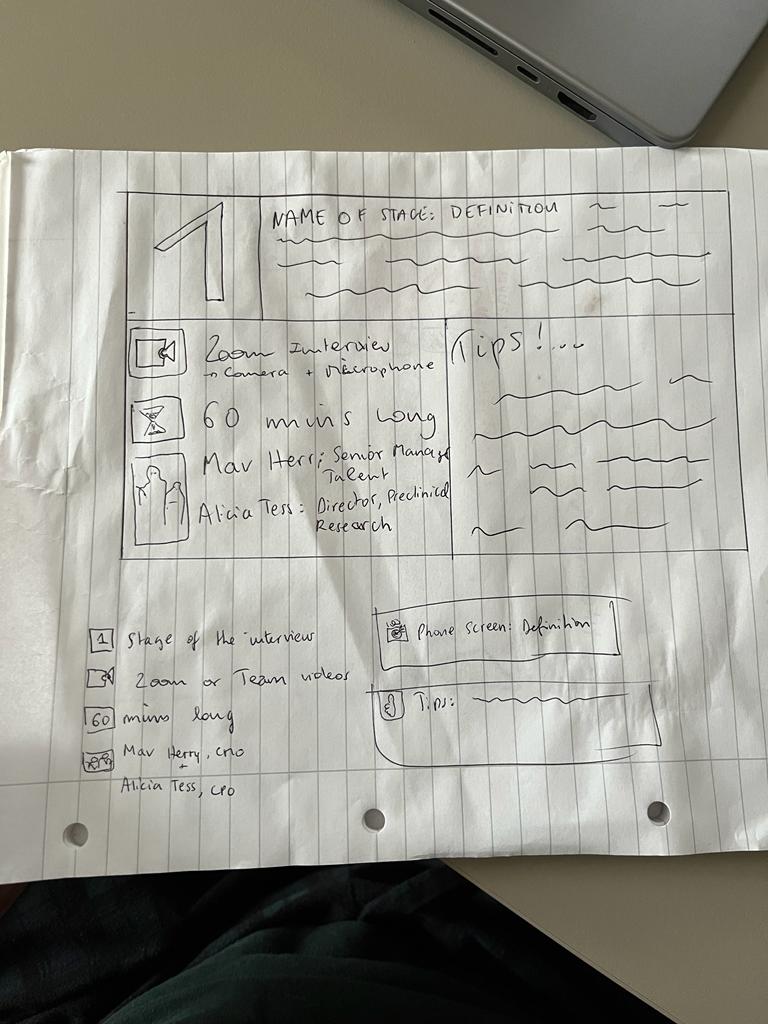 1
NAME OF STAGE: DEFINITION
Zoom Interview
→ Camera + Microphone
60 mins long
Mav Herr; Senior Manager
Talent
Alicia Tess: Director, Preclinical
Research
Tips!...
1 Stage of the interview
Zoom or Team videos
60 mins long
Mav Herry,
+
Alicia Tess, CPO
Phone Screen: Definition
Tips: